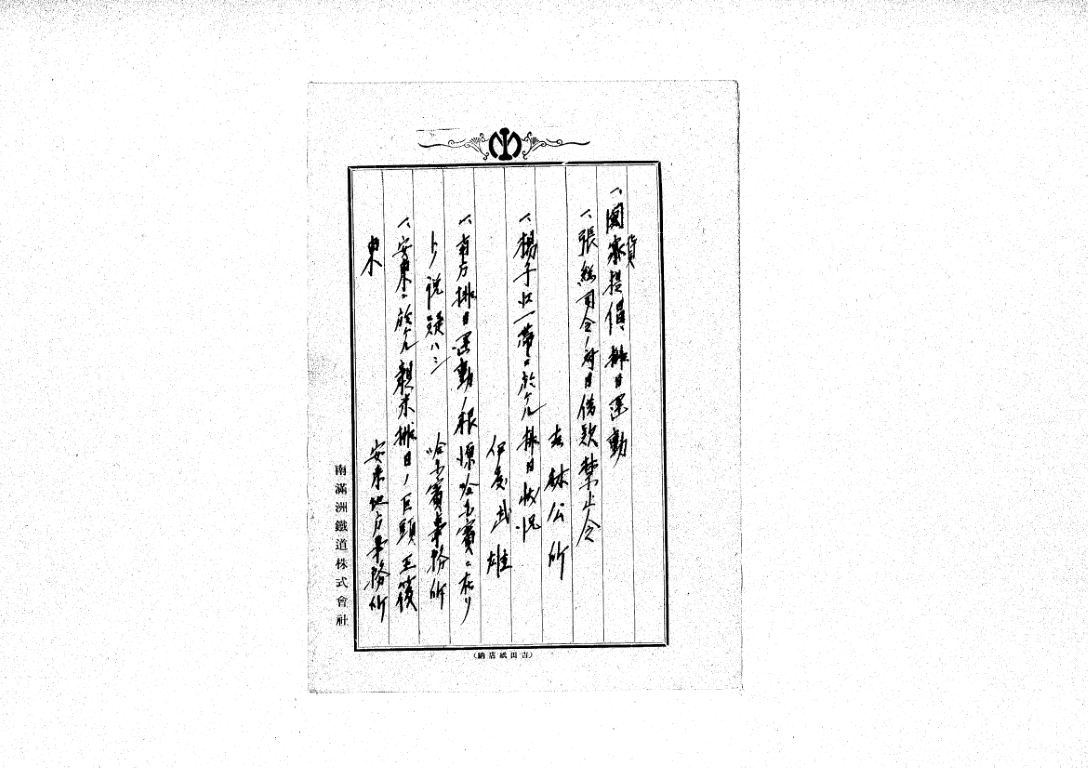 一、國貨提倡排日運動
一、張総司令ノ対日借款禁止令
吉林公所
一、楊子江一帯ニ於ケル排日状况
伊藤武雄
一、南方排日運動ノ根源哈爾賓ニ在リ
ト説疑ハシ
哈爾賓事務所
一、安東ニ於ケル親米排日ノ巨頭王筱
東
安東地方事務所
南滿洲鐵道株式會社
(吉田紙店納)